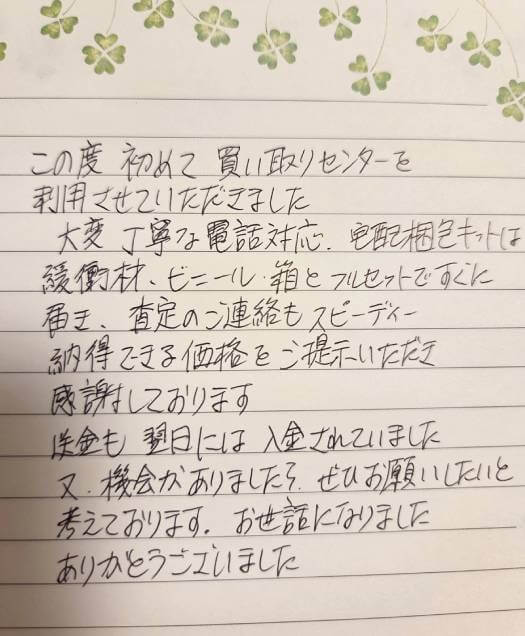 この度 初めて 買い取りセンターを
利用させていただきました
大変 丁寧な電話対応、宅配梱包キットは
緩衝材、ビニール・箱とフルセットですぐに
届き、査定のご連絡もスピーディー
納得できる価格をご提示いただき
感謝しております
送金も 翌日には 入金されていました
又、機会がありましたら、ぜひお願いしたいと
考えております。お世話になりました
ありがとうございました